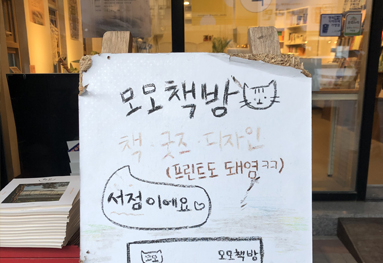 모모책방
책·굿즈·디자인
(프린트도 돼염ㅋㅋ)
서점이에요♡
모모책방